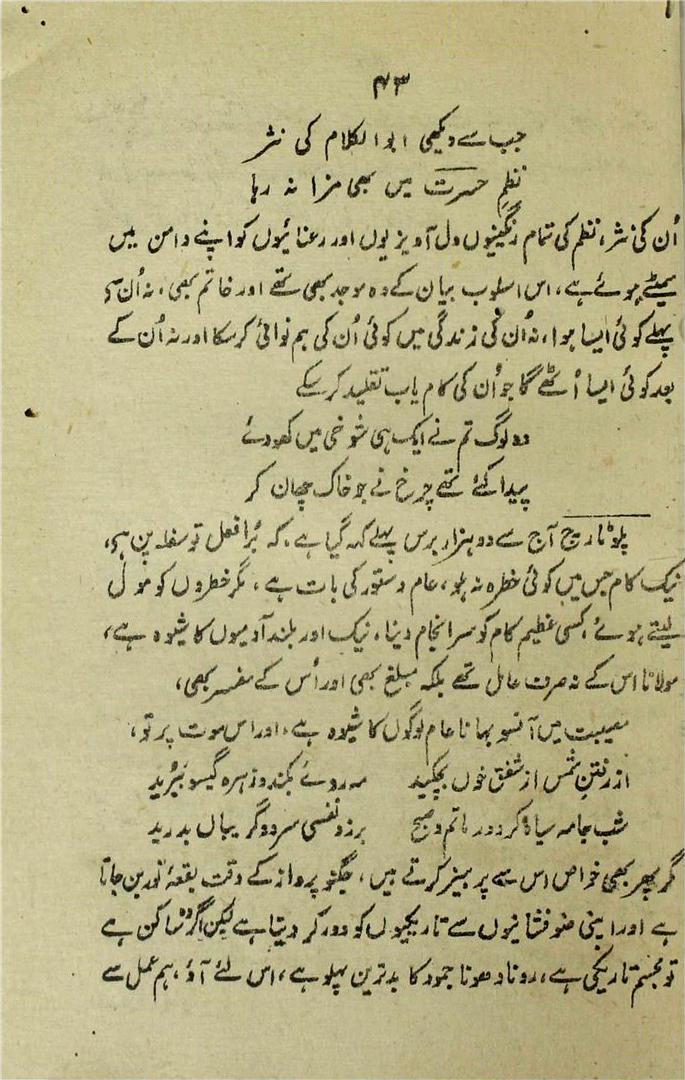 ۴۳
جب سے دیکھی ابوالکلام کی نثر
نظمِ حسرت میں بھی مزا نہ رہا
اُن کی نثر، نظم کی تمام رنگینیوں دل آویزیوں اور رعنائیوں کو اپنے دامن میں
سمیٹے ہوئے ہے، اس اسلوب بیان کے وہ موجد بھی تھے اور خاتم بھی، نہ اُن سے
پہلے کوئی ایسا ہوا، نہ اُن کی زندگی میں کوئی اُن کی ہم نوائی کر سکا اور نہ اُن کے
بعد کوئی ایسا اُٹھے گا جو اُن کی کام یاب تقلید کر سکے
وہ لوگ تم نے ایک ہی شوخی میں کھو دئے
پیدا کئے تھے چرخ نے جو خاک چھان کر
پلوٹارچ آج سے دو ہزار برس پہلے کہہ گیا ہے، کہ بُرا فعل تو سفلہ پن ہے،
نیک کام جس میں کوئی خطرہ نہ ہو، عام دستور کی بات ہے، مگر خطروں کو مول
لیتے ہوئے کسی عظیم کام کو سرانجام دینا، نیک اور بلند آدمیوں کا شیوہ ہے،
مولانا اس کے نہ صرف عامل تھے بلکہ مبلغ بھی اور اُس کے مفسر بھی،
مصیبت میں آنسو بہانا عام لوگوں کا شیوہ ہے، اور اس موت پر تو،
از رفتنِ شمس از شفق خوں بچکید مہ روئے بکند و زہرہ گیسو ببُرید
شب جامہ سیاہ کرد در ماتم و صبح برزد نفسی سرد و گریباں بدرید
مگر پھر بھی خواص اس سے پرہیز کرتے ہیں، جگنو پرواز کے وقت بقعۂ نور بن جاتا
ہے اور اپنی ضوفشانیوں سے تاریکیوں کو دور کر دیتا ہے لیکن اگر وہ ساکن ہے
تو مجسم تاریکی ہے، رونا دھونا جمود کا بدترین پہلو ہے، اس لئے آؤ، ہم عمل سے